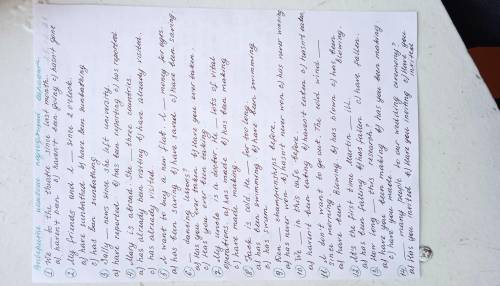 ① We — to the theatre since last month.
a) haven't been b) haven't been going c) hasn't gone
② My friends and I — since 5 o'clock.
a) have sunbathed b) have been sunbathing
c) has been sunbathing
③ Sally — news since she left university
a) have reported b) has been reporting c) has reported
④ Mary is abroad. She — three countries
a) has already been visiting b) have already visited.
c) has already visited
⑤ I want to buy a new flat. I — money for ages.
a) has been saving b) have saved c) have been saving.
⑥ — dancing lessons?
a) Has you ever taken b) Have you ever taken.
c) Has you ever been taking
⑦ My uncle is a doctor. He — lots of vital
operations. a) has made b) has been making
c) have made making
⑧ Jack is cold. He — for too long
a) has been swimming b) have been swimming
c) has swum
⑨ Euan — championships before.
a) has never won b) hasn't never won c) has never wining
⑩ We — in this cafe before.
a) haven't been eating b) haven't eaten c) hasn't eaten
⑪ I don't want to go out. The cold wind —
since morning. a) have been blowing b) has blown c) has been
blowing.
⑫ It's the first time Martin — ill.
a) has been falling b) has fallen c) have fallen.
⑬ How long — this research?
a) have you been making b) has you been making
c) have you made
⑭ — many people to our wedding ceremony?
a) Has you invited b) Have you inviting c) Have you
invited